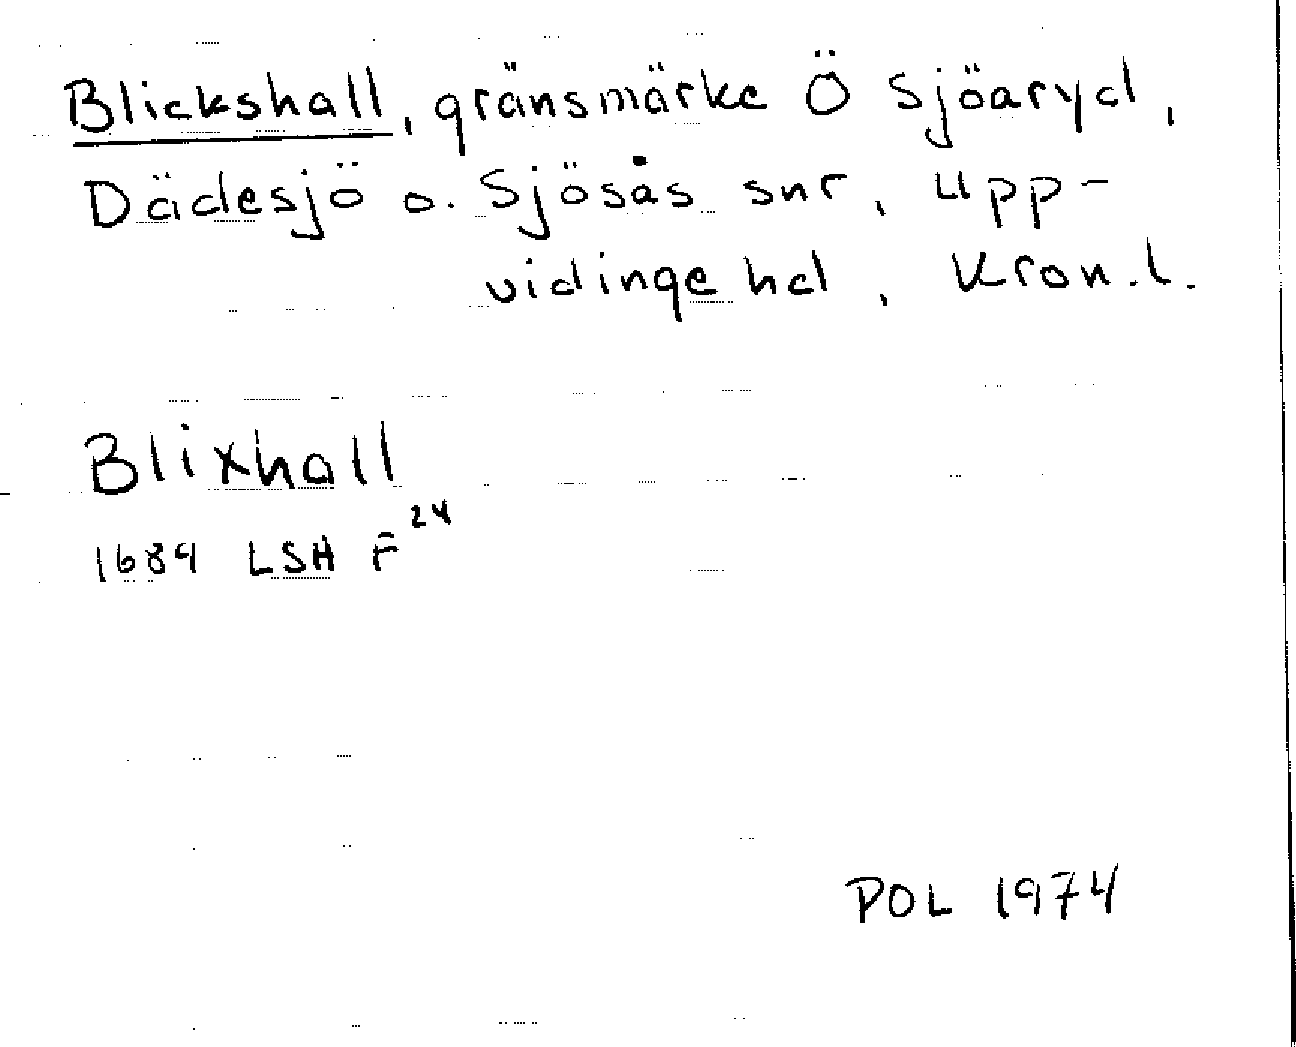 Blickshall, gränsmärke Ö Sjöaryd,
Dädesjö o. Sjösås snr, Upp-
vidinge hd, Kron.l.
Blixhall
1689 LSH F 24
POL 1974